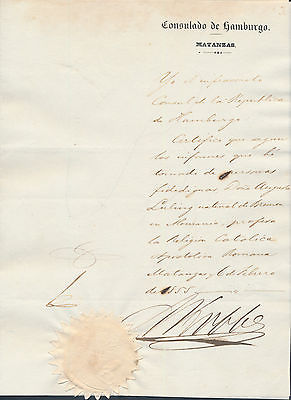 Consulado de Hamburgo.
MATANZAS.
Yo el infrascrito
Consul de la Republica
de Hamburgo
Certifico que segun
los informes que hé
tomado de personas
fidedignas Don Augusto
natural de Bremen
en profesa
la Religion Catolica
Apostolica Romana
Matanzas, 6 de Febrero
de 1855